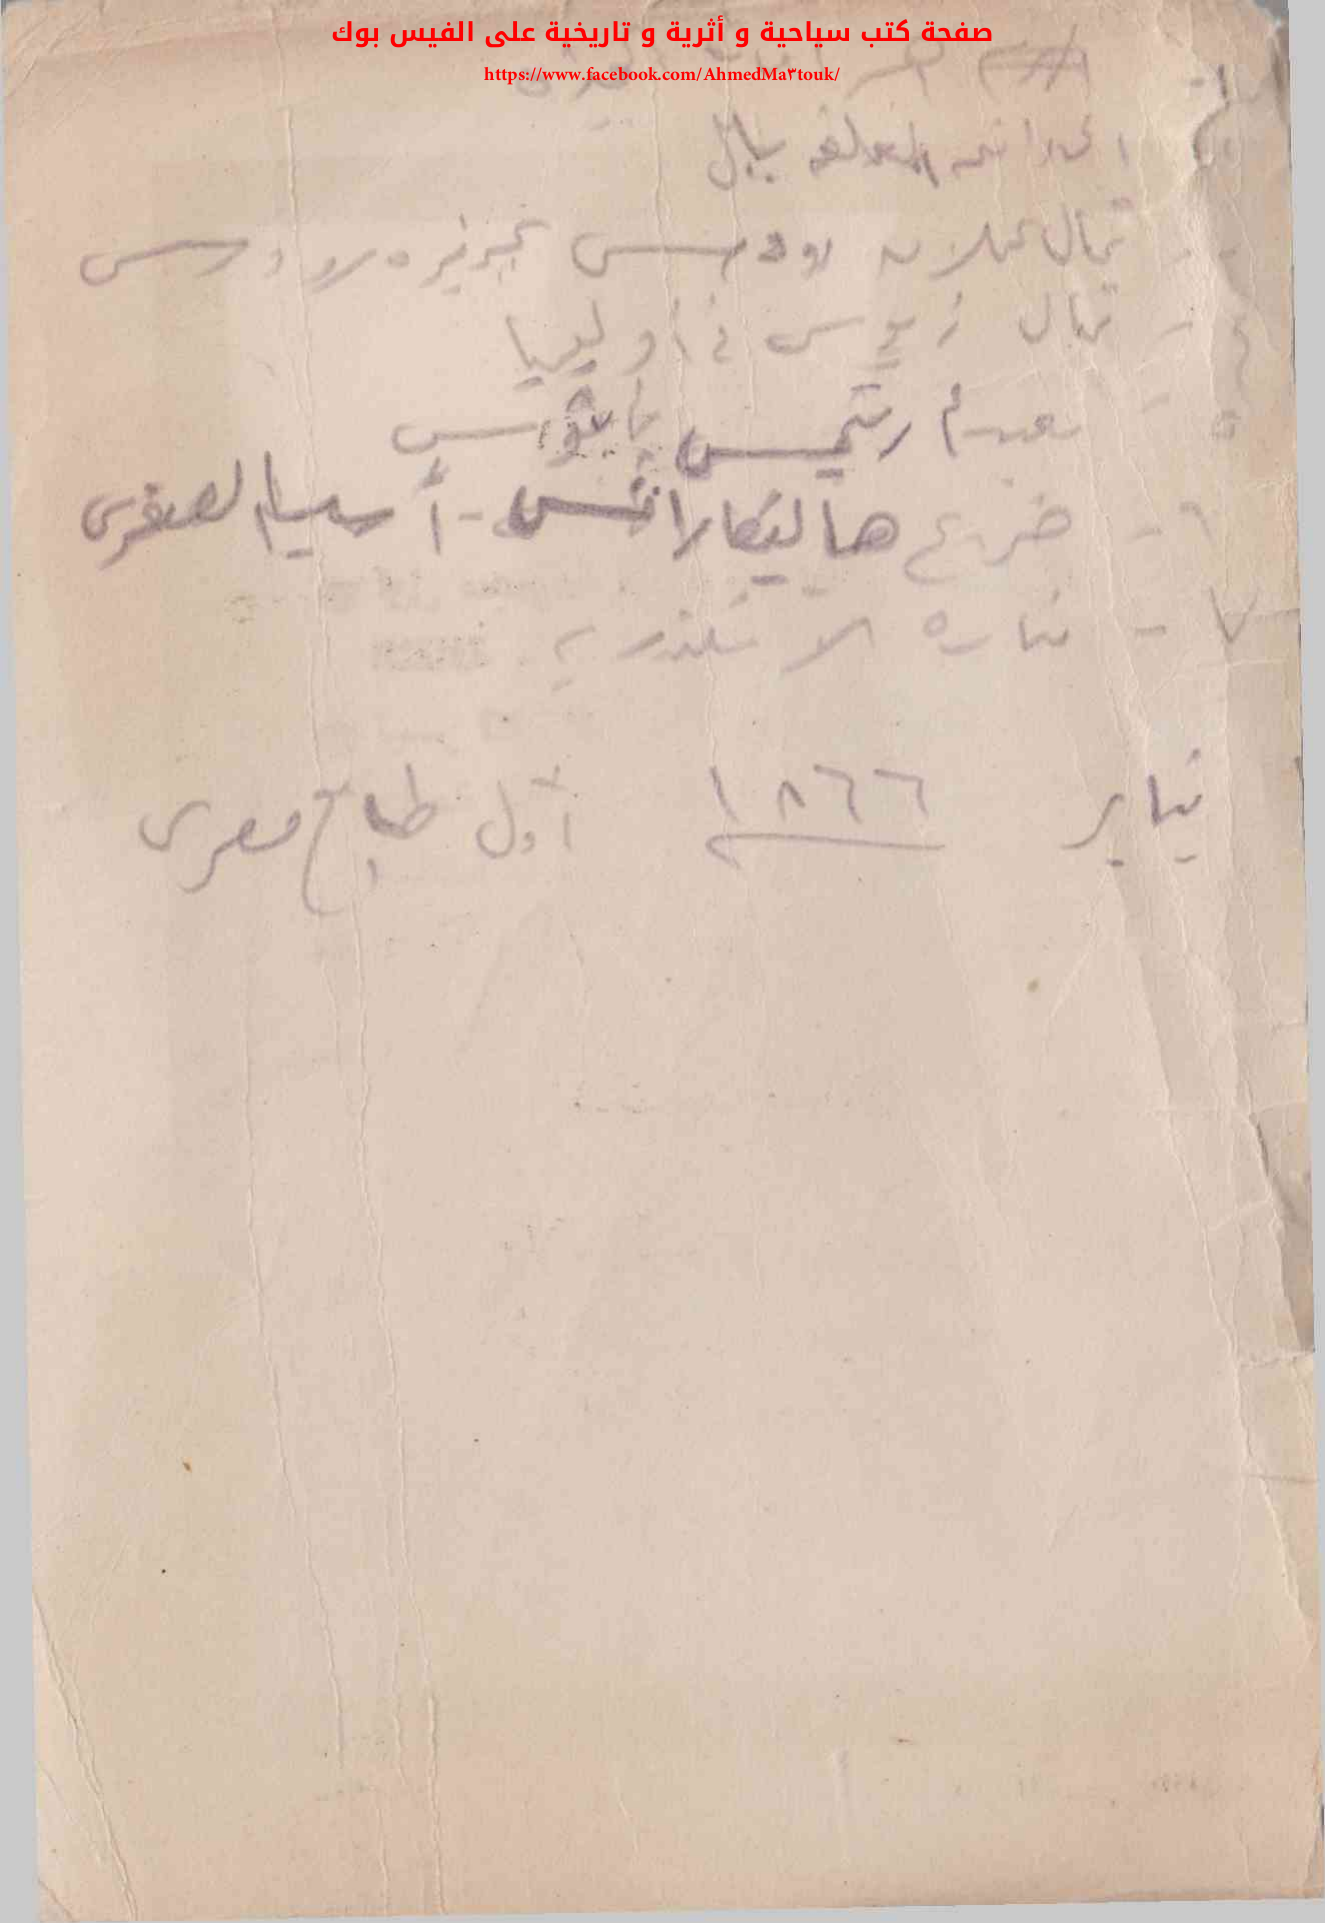 صفحة كتب سياحية و أثرية و تاريخية على الفيس بوك
https://www.facebook.com/AhmedMa٣touk/
١-
الحدائق المعلقه ببابل
- تمثال عملاق رودس بجزيرة رودس
٤ - تمثال زيوس في أوليبيا
٥ - معبد أرتميس
٦ - ضريح هاليكارناس - أسيا الصغرى
٧ - منارة الاسكندريه
يناير ١٨٦٦ أول طابع مصرى